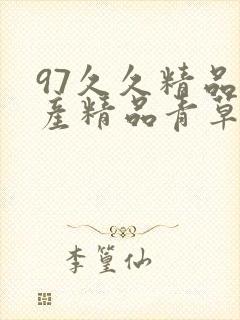 97久久精品
産精品青草
李篁仙